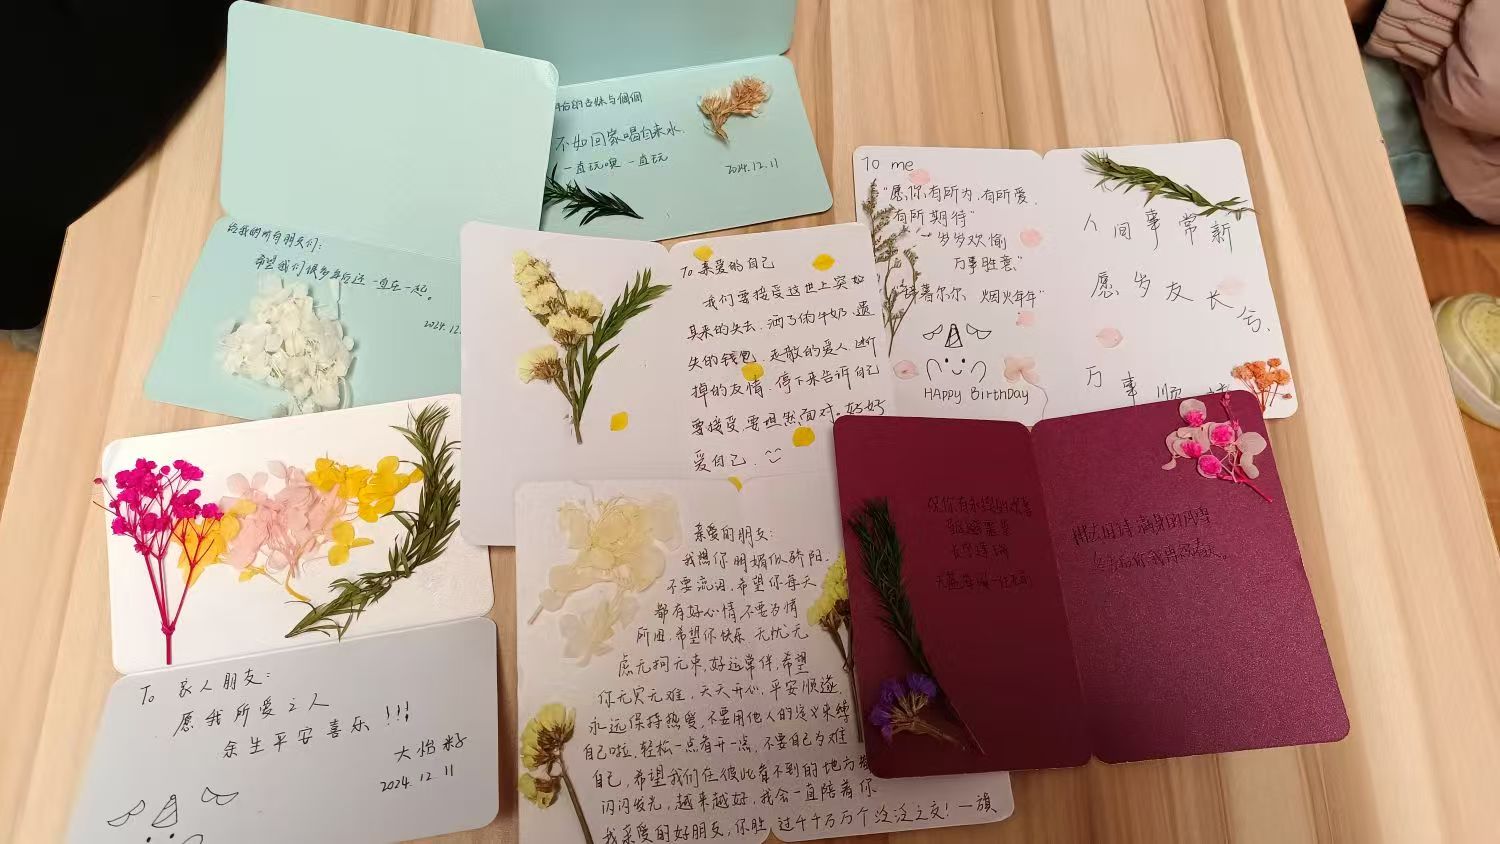 不如回家喝自来水
一直玩噢 一直玩
2024.12.11
给我的所有朋友们：
希望我们很多年后还一直在一起。
2024.12.
To 亲爱的自己
我们要接受这世上突如
其来的失去、洒了的牛奶、遗
失的钱包、走散的爱人、断
掉的友情。停下来告诉自己
要接受、要坦然面对。好好
爱自己.
To me
"愿你有所为,有所爱,
有所期待"
岁岁欢愉
万事胜意"
尔尔 烟火年年"
HAppy BirthDay
人间事常新
愿岁友长兮,
万事顺
To 家人朋友:
愿我所爱之人
余生平安喜乐!!!
大怡籽
2024.12.11
亲爱的朋友:
我想你明媚似骄阳,
不要流泪,希望你每天
都有好心情不要为情
所困,希望你快乐 无忧无
虑无拘无束,好运常伴,希望
你无灾无难,天天开心,平安顺遂,
永远保持热爱,不要用他人的定义来缚
自己啦,轻松一点看开一点,不要自己为难
自己,希望我们在彼此看不到的地方都
闪闪发光,越来越好,我会一直陪着你
我亲爱的好朋友,你胜过千千万万个泛泛之交!
祝你有